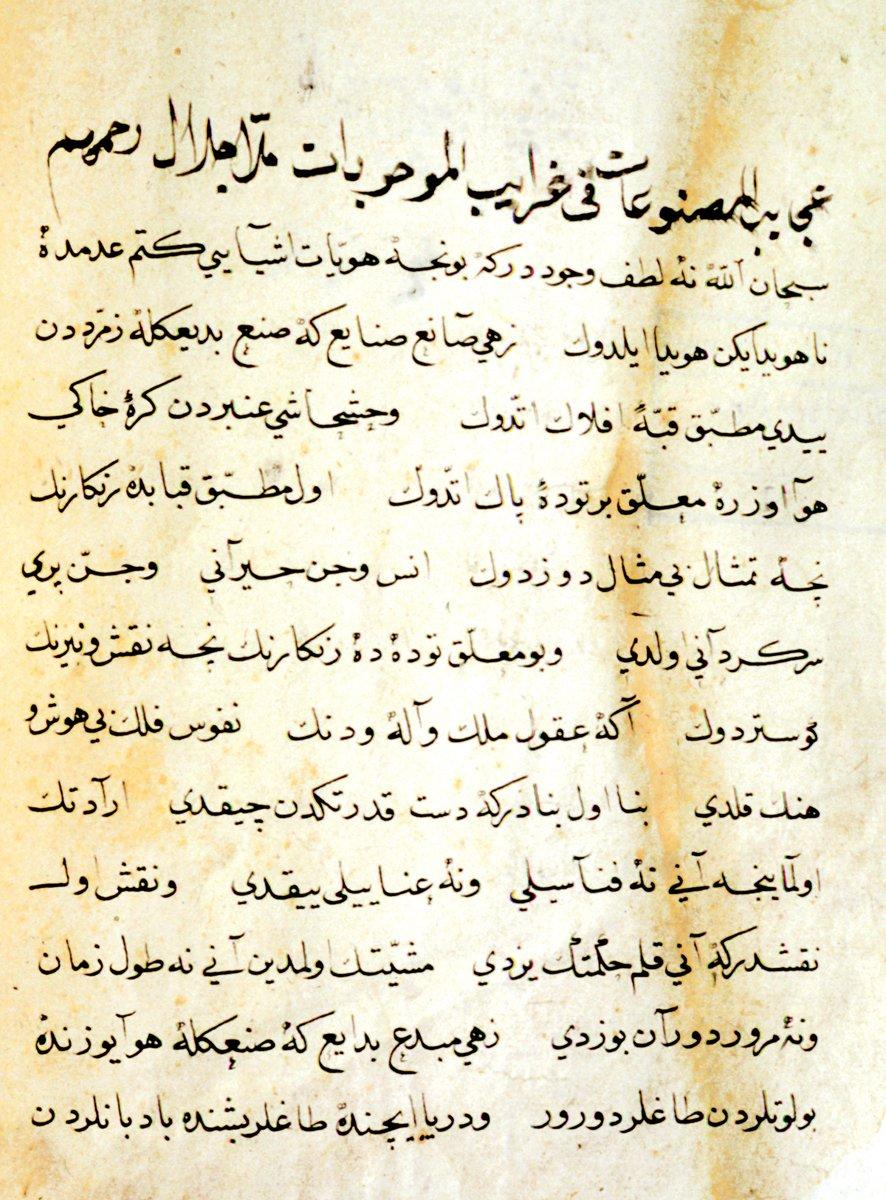 عجایب المصنوعات فی غرایب الموحریات ملا جلال رحمهم
سبحان الله نه لطف وجوددركه بونجه هویّات اشیآییی كتم عدمده
ناهویدایكن هویدا ایلدوك زهی صآنع صنایع كه صنع بدیعكله زمرّددن
ییدی مطبّق قبّهٔ افلاك اتّدوك وخشحاشی عنبردن كرهٔ خاكی
هوآ اوزره معلّق برتودهٔ پاك اتّدوك اول مطبّق قبابده زنكارنك
نچه تمثال بی مثال دوزدوك انس وجن حیرآنی وجنّ پری
سركردآنی اولدی وبومعلّق تودهٔ ده زنكارنك نچه نقش ونیرنك
كوستردوك آكه عقول ملك وآله ودنك نفوس فلك بی هوش و
هنك قلدی بنا اول بنادركه دست قدرتكدن چیقدی ارآدتك
اولماینجه آنی نه فنآ سیلی ونه عنا ییلی ییقدی ونقش اول
نقشدركه آنی قلم حكمتك یزدی مشیّتك اولمدین آنی نه طول زمان
ونه مرور دورآن بوزدی زهی مبدع بدایع كه صنعكله هوآ یوزنده
بولوتلردن طاغلر دورور ودریا ایچنده طاغلر بشنده بادبانلردن